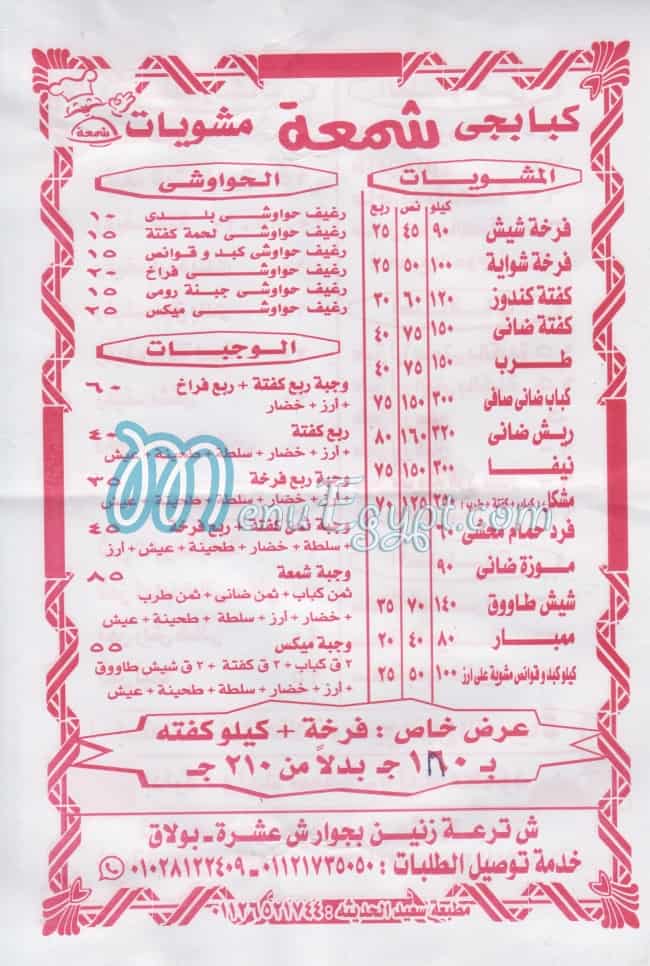 كبابجى شمعة مشويات
شمعة
المشويات
كيلو نص ربع
فرخة شيش ٩٠ ٤٥ ٢٥
فرخة شواية ١٠٠ ٥٠ ٢٥
كفتة كندوز ١٢٠ ٦٠ ٣٠
كفتة ضانى ١٥٠ ٧٥ ٤٠
طرب ١٥٠ ٧٥ ٤٠
كباب ضانى صافى ٣٠٠ ١٥٠ ٧٥
ريش ضانى ٣٢٠ ١٦٠ ٨٠
نيفا ٣٠٠ ١٥٠ ٧٥
مشكل ٢٥٠ ١٢٥ ٧٠
فرد حمام محشى
موزة ضانى ٩٠
شيش طاووق ١٤٠ ٧٠ ٣٥
ممبار ٨٠ ٤٠ ٢٠
كيلو كبد و قوانس مشوية على ارز ١٠٠ ٥٠ ٢٥
الحواوشى
رغيف حواوشى بلدى ١٠
رغيف حواوشى لحمة كفتة ١٥
رغيف حواوشى كبد و قوانس ١٥
رغيف حواوشى فراخ ٢٠
رغيف حواوشى جبنة رومى ١٥
رغيف حواوشى ميكس ٢٥
الوجبات
وجبة ربع كفتة + ربع فراخ ٦٠
+ أرز + خضار
ربع كفتة ٤٠
+ أرز + خضار + سلطة + طحينة + عيش
وجبة ربع فرخة ٣٥
+ أرز + خضار + سلطة + طحينة + عيش
وجبة ثمن كفتة + ربع فرخة ٤٥
+ سلطة + خضار + طحينة + عيش + أرز
وجبة شمعة ٨٥
ثمن كباب + ثمن ضانى + ثمن طرب
+ خضار + أرز + سلطة + طحينة + عيش
وجبة ميكس ٥٥
٢ ق كباب + ٢ ق كفتة + ٢ ق شيش طاووق
+ أرز + خضار + سلطة + طحينة + عيش
عرض خاص : فرخة + كيلو كفته
بـ ١٨٠ جـ بدلاً من ٢١٠ جـ
ش ترعة زنين بجوار ش عشرة - بولاق
خدمة توصيل الطلبات : ٠١١٢١٧٣٥٠٥٠ - ٠١٠٢٨١٢٢٤٠٩
مطبعة سعيد الحديثة : ٠١١٢٦٥٢١٧٤٤
MenuEgypt.com